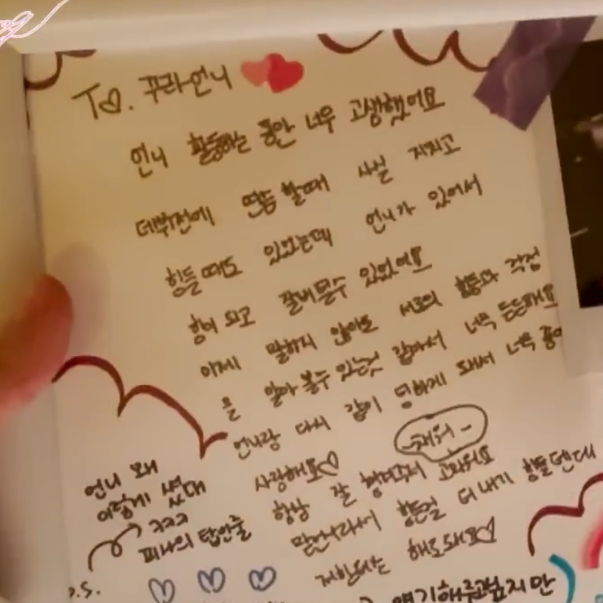 To. 꾸라언니
언니 활동하는 동안 너무 고생했어요
데뷔전에 연습할때 사실 지치고
힘들때도 있었는데 언니가 있어서
힘이 되고 잘버틸수 있었어요
이제 말하지 않아도 서로의 힘듦과 걱정
을 알아볼수 있는것 같아서 너무 든든해요
언니랑 다시 같이 하게 돼서 너무 좋아
사랑해요♡
항상 잘 챙겨줘서 고마워요
맏언니라서 힘든걸 티내기 힘들텐데
저한테는 해도돼요♡
언니 왜
이렇게 썼대
ㅋㅋㅋ
피사의 탑인줄
P.S.
얘기해주고싶지만